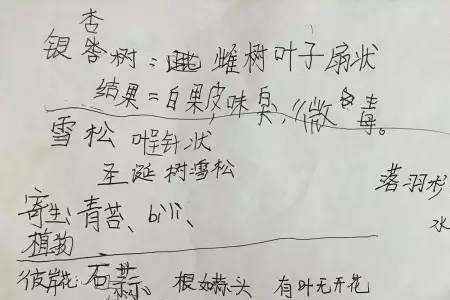 杏
银杏树：雌树叶子扇状
结果=白果皮味臭，微毒。
雪松 呈针状
圣诞树雪松
落羽杉
水
寄生、青苔、bili、
植物
彼岸花：石蒜、根如蒜头 有叶无开花